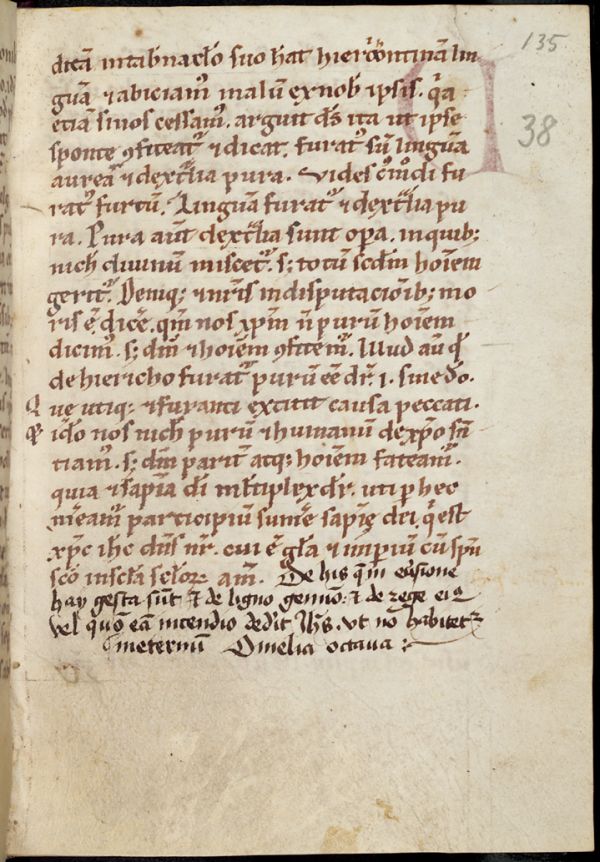 135
38
dicā in tab̄nac̄lo suo hāt hier̄ cōtinām lin
guā ⁊ abiciam᷒ malū ex nob̄ ipsis. q̇a
etiā si nos cessam᷒. arguit d̄s ita ut ipse
sponte ꝯfiteat᷑ ⁊ dicat. furat᷒ sū linguā
aureā ⁊ dext̄lia pura. Vides c᷒modi fu
rat᷒ furtū. Linguā furat᷒ ⁊ dext̄lia pu
ra. Pura aūt dext̄lia sunt op̄a. in quib;
nich̄ diuinū miscet᷑. s; totū scdm̄ hoīem
gerit᷑. Deniq; ⁊ nr̄is in disputacionib; mo
ris ē dic̄e. qm̄ nos xp̄m n̄ purū hoīem
dicim᷒. s; dm̄ ⁊ hoīem ꝯfitem᷑. Illud aū qḋ
de hiericho furat᷑ purū eē dr̄. i. sine do.
ue utiq; ⁊ furanti extitit causa peccati.
ido nos nich̄ purū ⁊ humanū de xp̄o sn̄
tiam᷒. s; dm̄ parit̄ atq; hoīem fateam᷑.
quia ⁊ sapīa dī ml̄tiplex dr̄. uti p hec
m̄eam᷒ participiū sum̄e sapīę dei. q̇ est
xp̄c ih̄c dn̄s nr̄. cui ē gl̄a ⁊ imp̄iū cū sp̄u
sc̄o in sc̄la sc̄lor̄. am̄. De his q̄ in euersione
hay gesta sūt ⁊ de ligno gemino: ⁊ de rege ei᷒
vel quō eā incendio dedit Ih̄s. vt nō habitet᷑
in eternū Omelia octaua :~